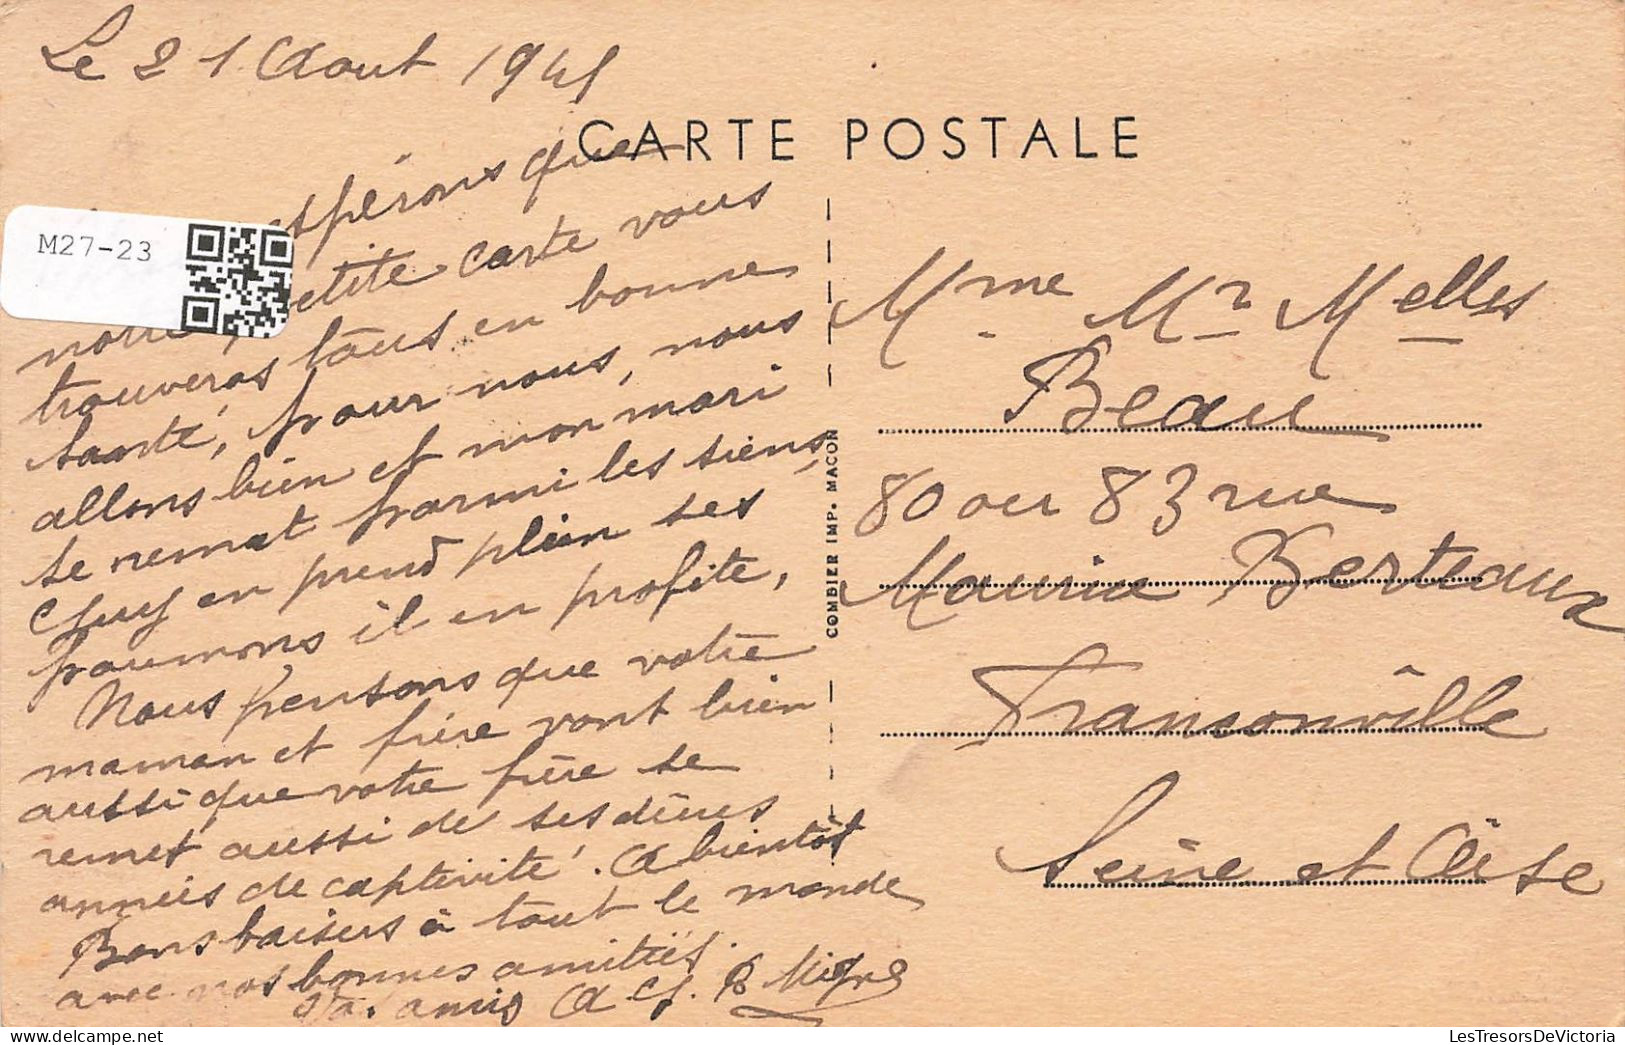 Le 21 Aout 1941
CARTE POSTALE
M27-23
espérons que
notre petite carte vous
trouveras tous en bonne
santé, pour nous, nous
allons bien et mon mari
se remet parmi les siens,
en prend plein ses
poumons il en profite,
Nous pensons que votre
maman et frère vont bien
aussi que votre frère se
remet aussi de ses dures
annés de captivité. A bientôt
Bons baisers à tout le monde
avec nos bonnes amitiés.
amis
COMBIER IMP. MACON
Mme Mr Melles
Beau
80 ou 83 rue
Maurice Berteaux
Franconville
Seine et Oise
LesTresorsDeVictoria.com